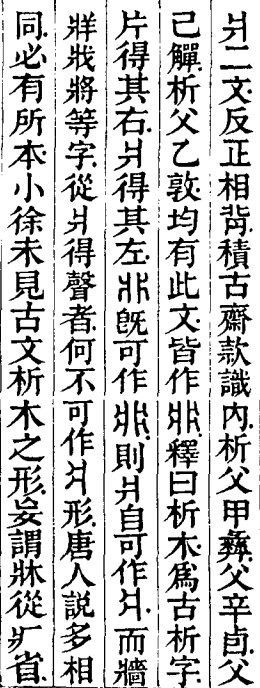 爿二文反正相背積古齋款識內析父甲彝父辛卣父
己觶析父乙敦均有此文皆作 釋曰析木爲古析字
片得其右爿得其左 旣可作 則爿自可作 而牆
牂戕將等字從爿得聲者何不可作 形唐人說多相
同必有所本小徐未見古文析木之形妄謂牀從疒省